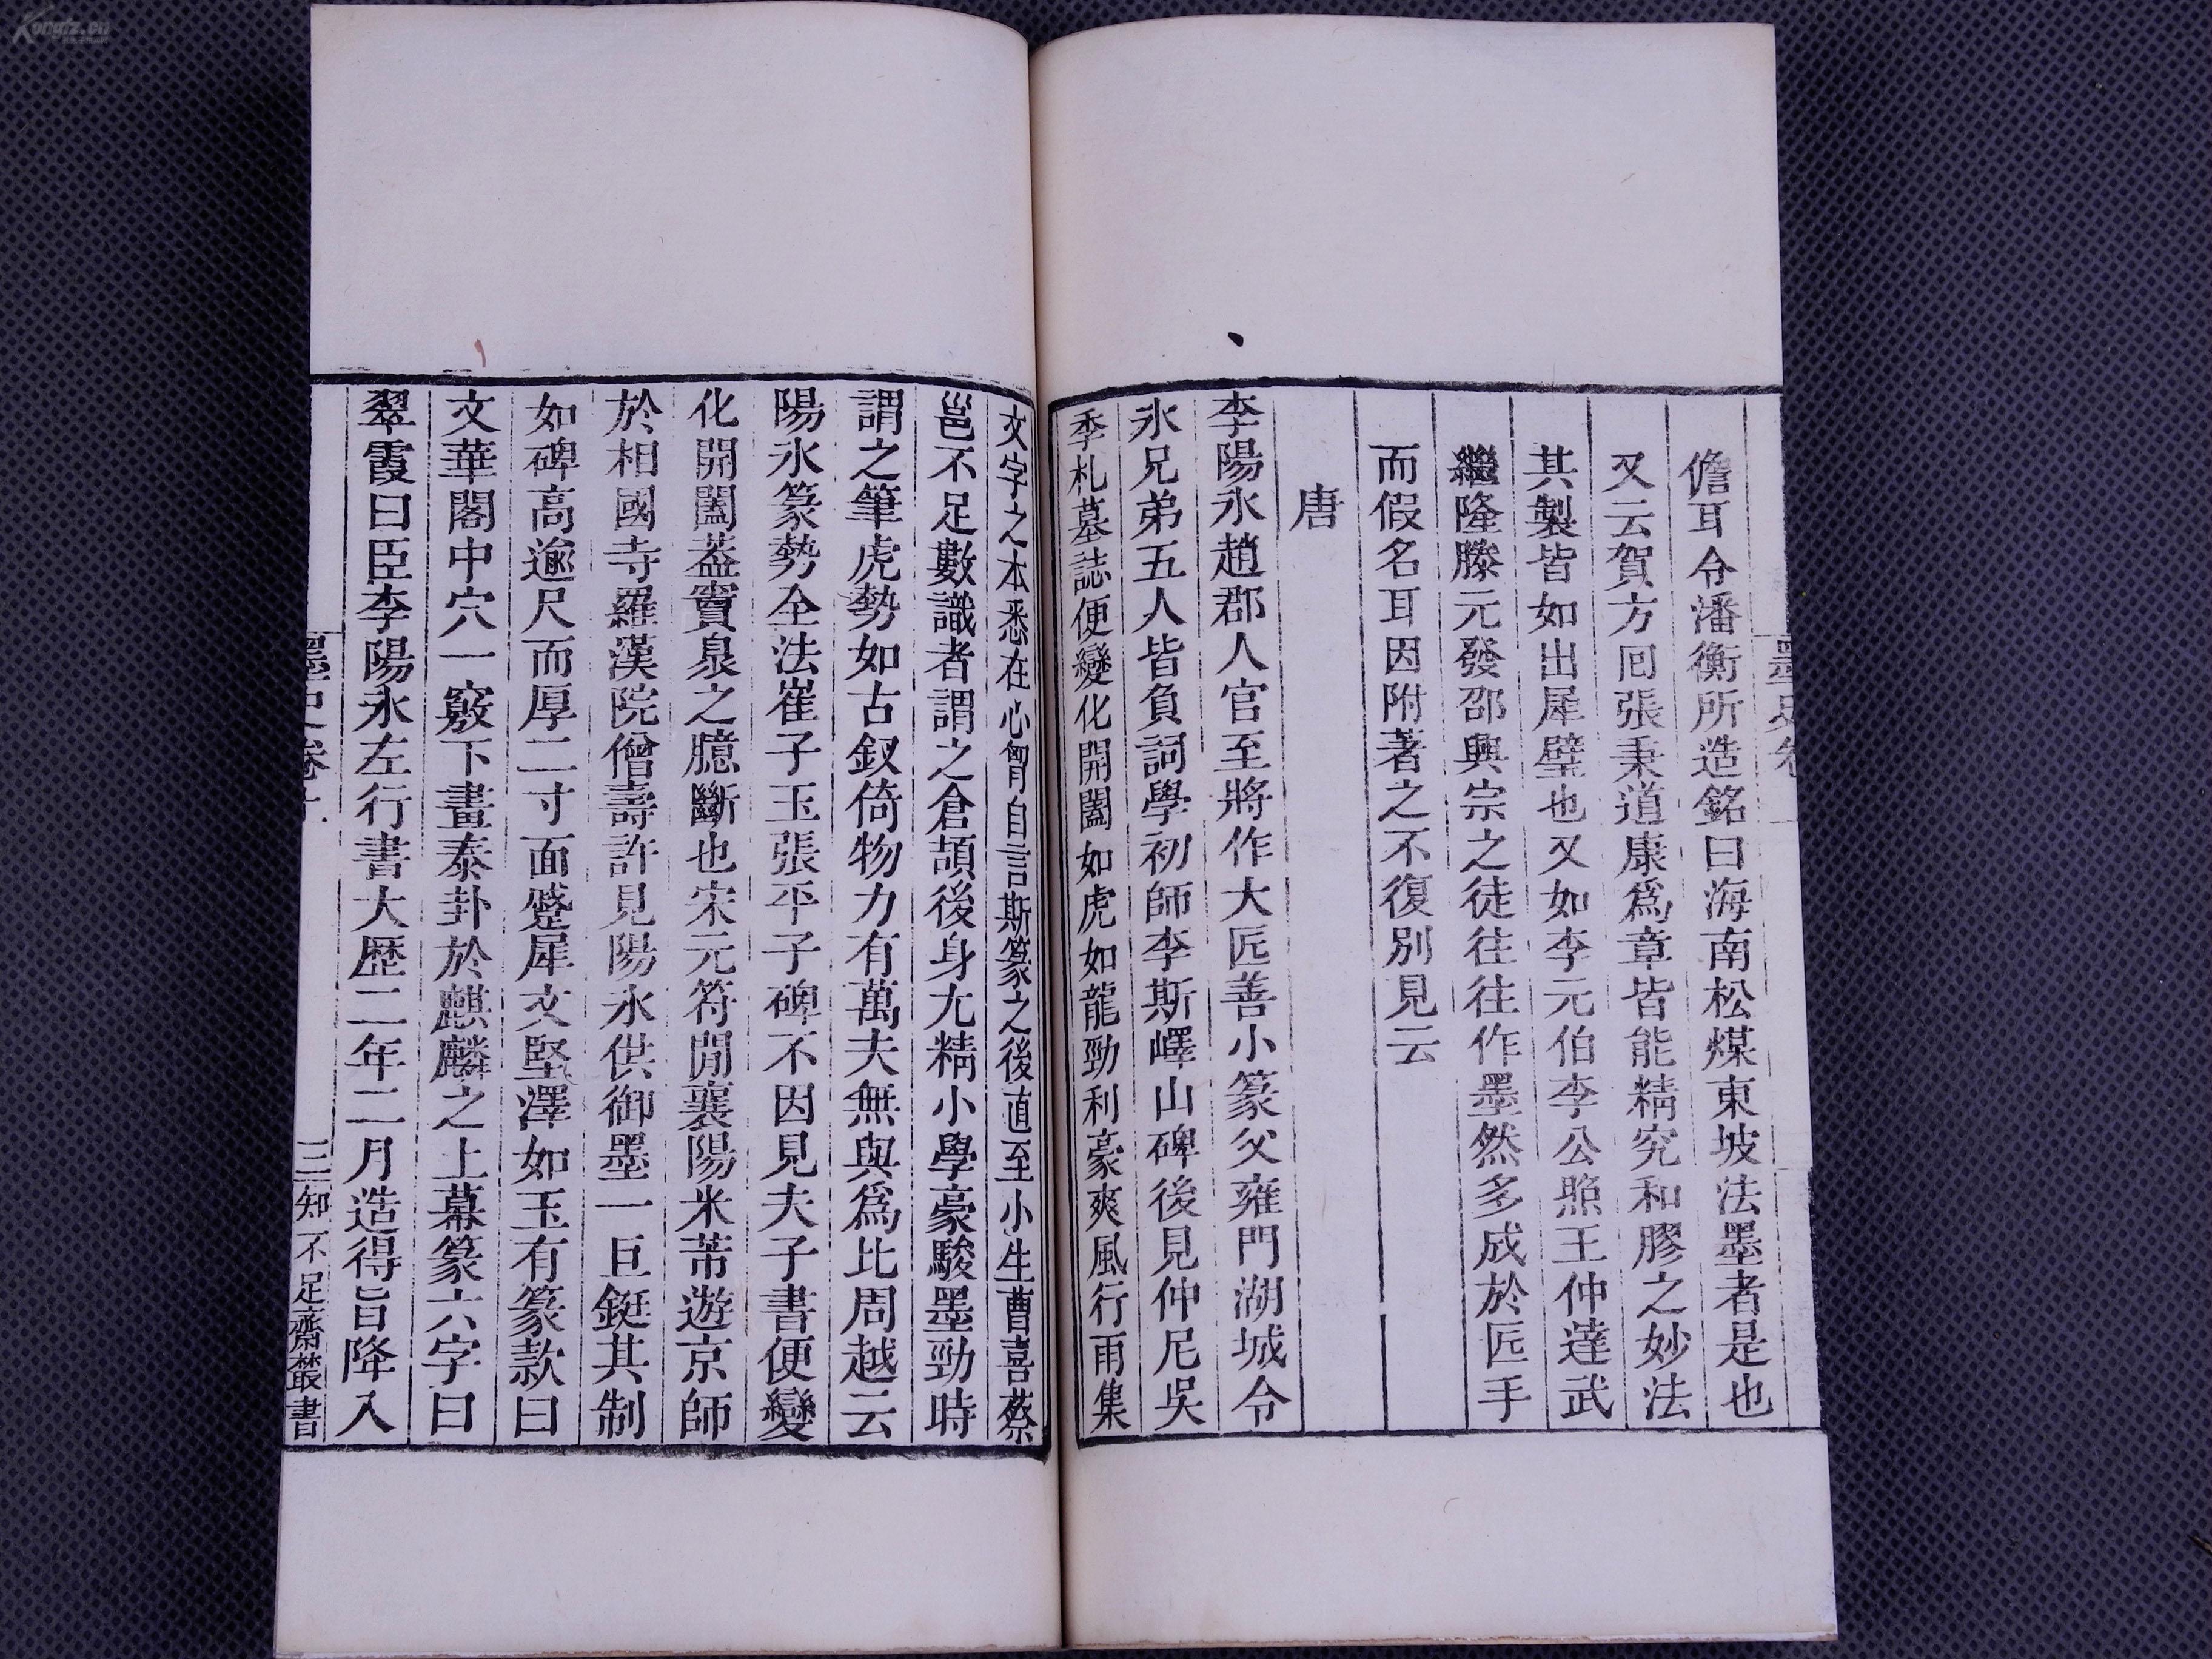 儋耳令潘衡所造銘曰海南松煤東坡法墨者是也
又云賀方囘張秉道康爲章皆能精究和膠之妙法
其製皆如出犀璧也又如李元伯李公照王仲達武
繼隆滕元發邵興宗之徒往往作墨然多成於匠手
而假名耳因附著之不復別見云
唐
李陽氷趙郡人官至將作大匠善小篆父雍門湖城令
氷兄弟五人皆負詞學初師李斯嶧山碑後見仲尼吳
季札墓誌便變化開闔如虎如龍勁利豪爽風行雨集
文字之本悉在心胷自言斯篆之後直至小生曹喜蔡
邕不足數識者謂之倉頡後身尤精小學豪駿墨勁時
謂之筆虎勢如古釵倚物力有萬夫無與爲比周越云
陽氷篆勢全法崔子玉張平子碑不因見夫子書便變
化開闔葢竇泉之臆斷也宋元符間襄陽米芾遊京師
於相國寺羅漢院僧壽許見陽氷供御墨一巨鋌其制
如碑高逾尺而厚二寸面蹙犀文堅澤如玉有篆款曰
文華閣中穴一竅下畫泰卦於麒麟之上幕篆六字曰
翠霞曰臣李陽氷左行書大歷二年二月造得旨降入
墨史卷上
三知不足齋叢書
Kongfz.cn